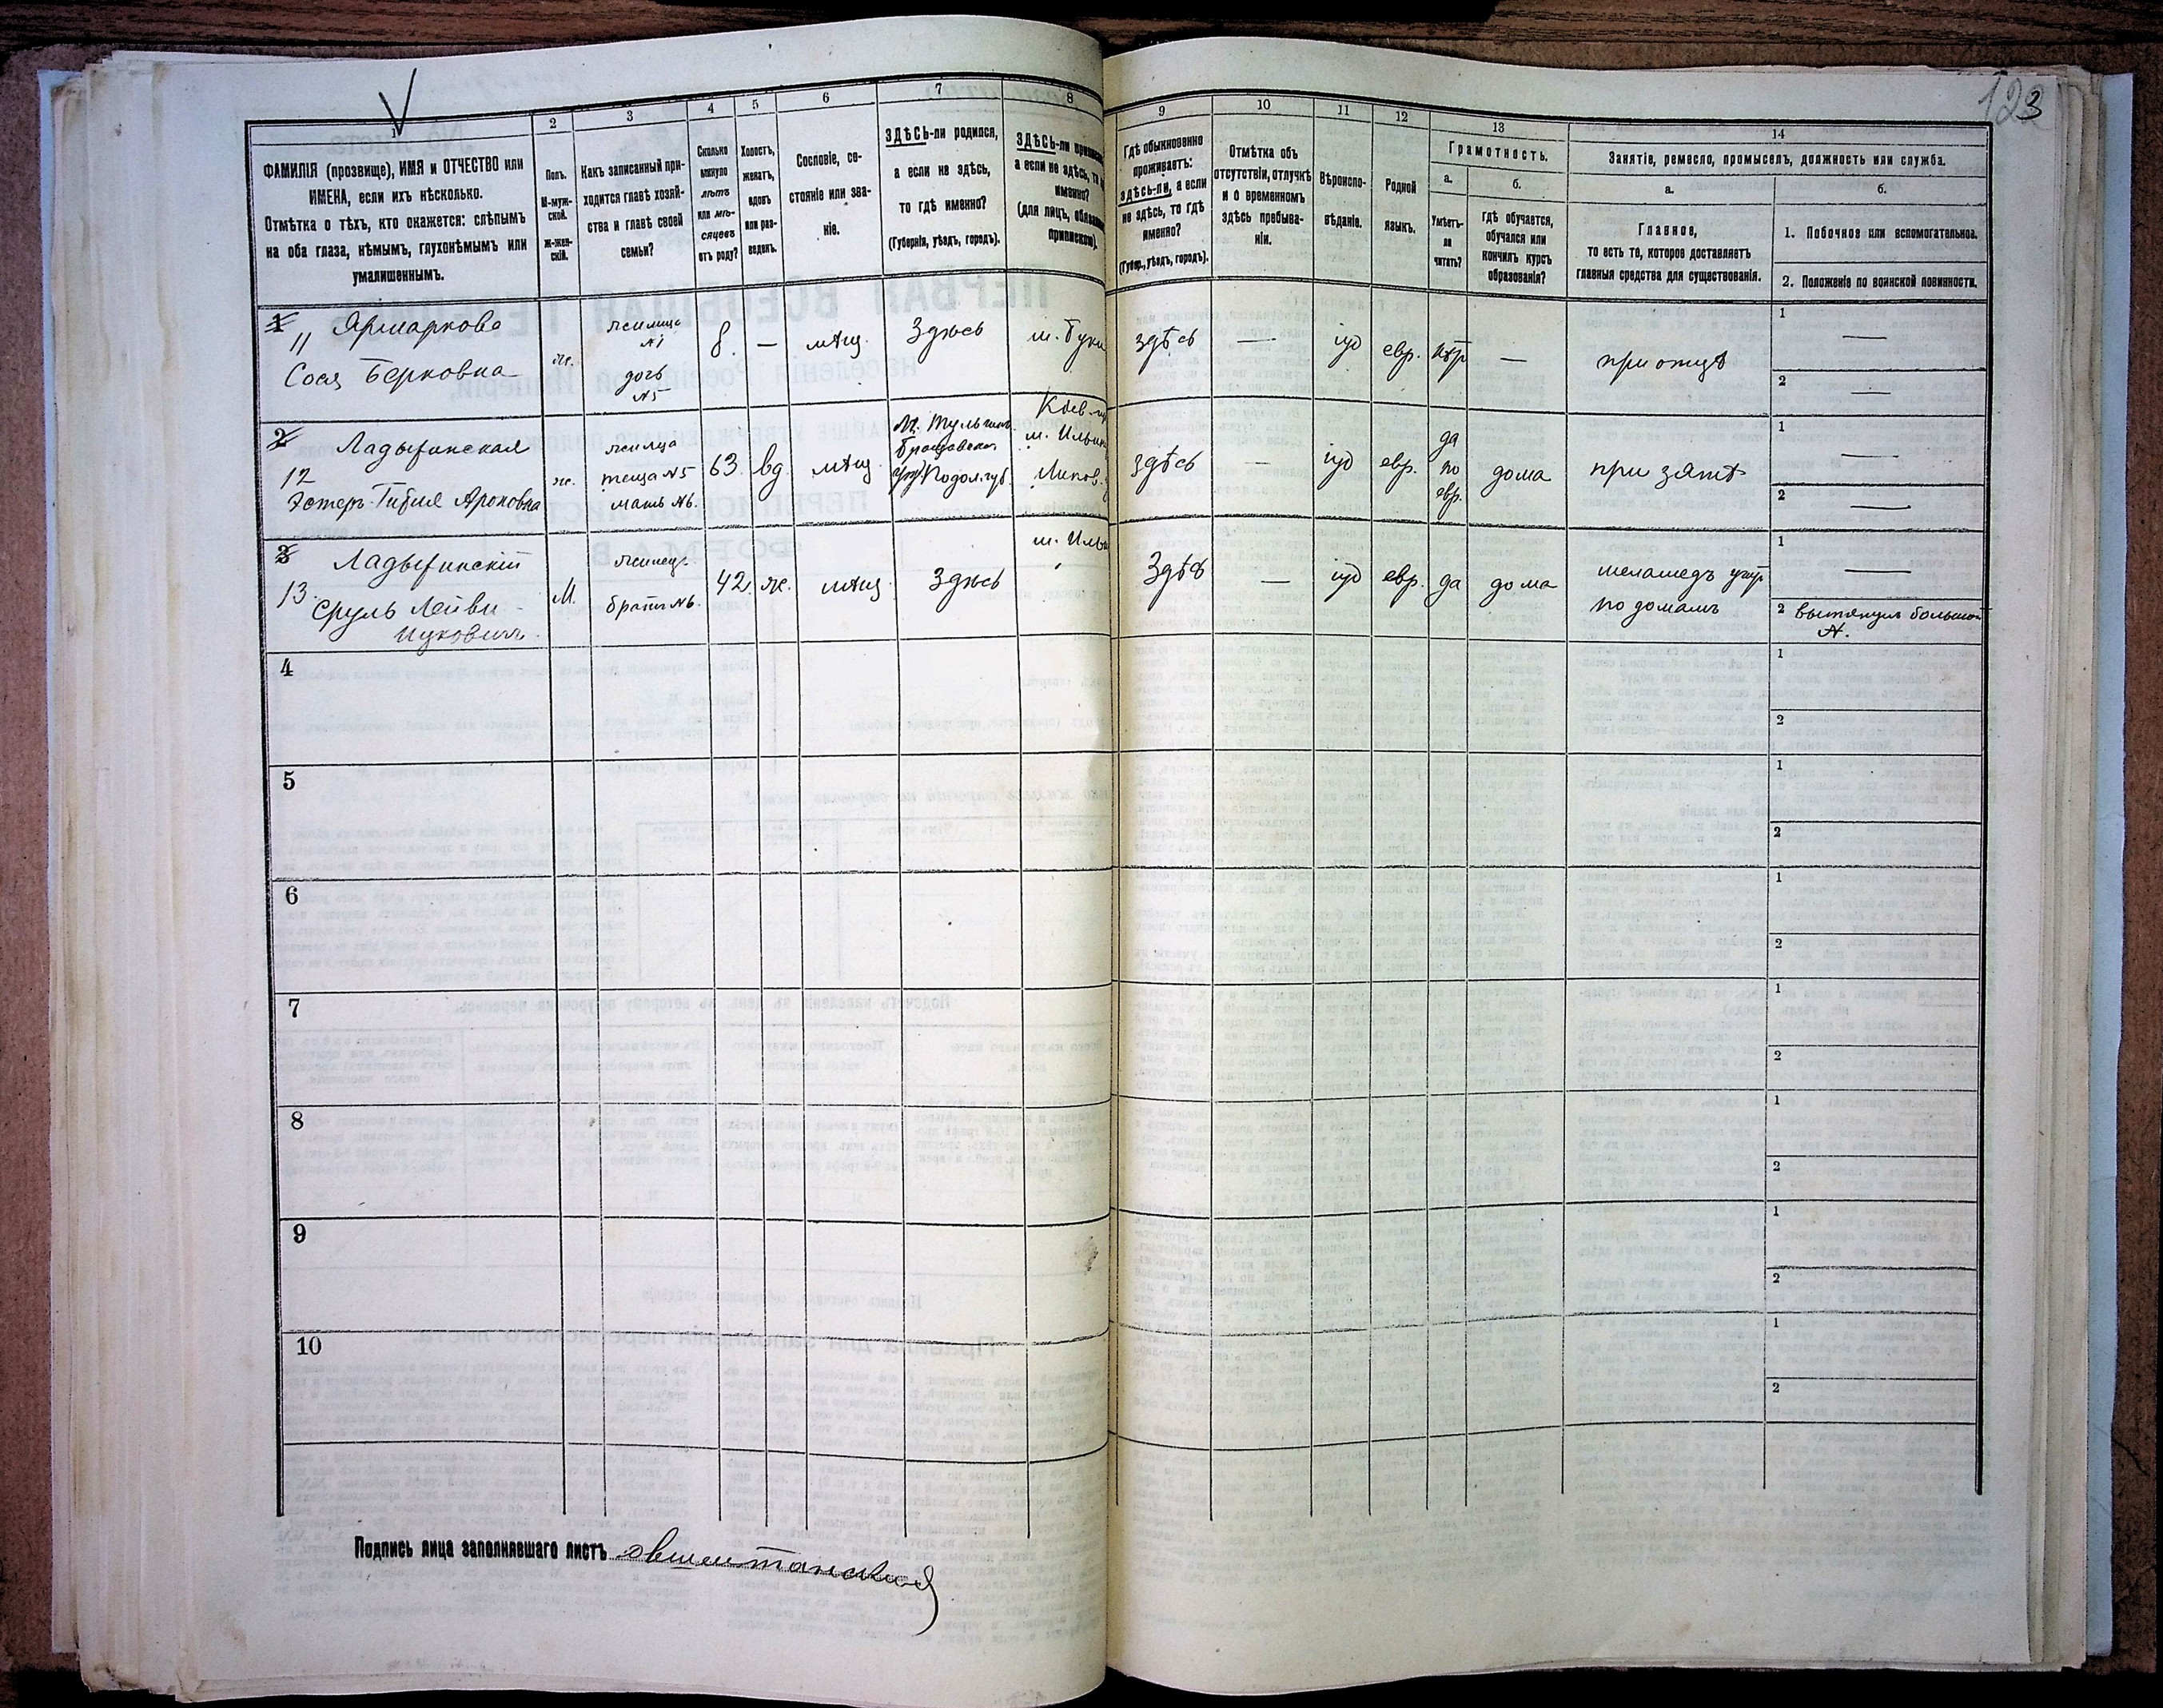 123
1
ФАМИЛІЯ (прозвище), ИМЯ и ОТЧЕСТВО или
ИМЕНА, если ихъ нѣсколько.
Отмѣтка о тѣхъ, кто окажется: слѣпымъ
на оба глаза, нѣмымъ, глухонѣмымъ или
умалишеннымъ.
2
Полъ.
М-муж-
ской.
Ж-жен-
скій.
3
Какъ записанный при-
ходится главѣ хозяй-
ства и главѣ своей
семьи?
4
Сколько
минуло
лѣтъ
или мѣ-
сяцевъ
отъ роду?
5
Холостъ,
женатъ,
вдовъ
или раз-
веденъ.
6
Сословіе, со-
стояніе или зва-
ніе.
7
ЗДѢСЬ-ли родился,
а если не здѣсь,
то гдѣ именно?
(Губернія, уѣздъ, городъ).
8
ЗДѢСЬ-ли
а если не здѣсь,
именно?
(для лицъ,
припиской).
9
Гдѣ обыкновенно
проживаетъ:
здѣсь-ли, а если
не здѣсь, то гдѣ
именно?
(Губер., уѣздъ, городъ).
10
Отмѣтка объ
отсутствіи, отлучкѣ
и о временномъ
здѣсь пребыва-
ніи.
11
Вѣроиспо-
вѣданіе.
12
Родной
языкъ.
13
Грамотность.
а.
Умѣетъ-
ли
читать?
б.
гдѣ обучается,
обучался или
кончилъ курсъ
образованія?
14
Занятіе, ремесло, промыселъ, должность или служба.
а.
Главное,
то есть то, которое доставляетъ
главныя средства для существованія.
б.
1. Побочное или вспомогательное.
2. Положеніе по воинской повинности.
1
11
Ярмаркова
Сося Берковна
ж.
жилица
№1
дочь
№5
8.
—
мѣщ.
Здѣсь
м. Буки
здѣсь
—
іуд
евр.
нѣт
—
при отцѣ
1 —
2 —
2
12
Ладыжинская
Эстеръ-Гитля Ароновна
ж.
жилица
теща №5
мать №6.
63
вд.
мѣщ.
М. Тульчинъ
Брацлавскаго
Подол. губ.
Кіев.
м. Ильин
Липов.
здѣсь
—
іуд
евр.
да
по
евр.
дома
при зятѣ
1 —
2 —
3
13.
Ладыжинскій
Сруль Лейви-
Ицковичъ.
М.
жилецъ
братъ №6.
42
ж.
мѣщ
Здѣсь
м. Ильи
Здѣсь
—
іуд
евр.
да
дома
меламедъ
по домамъ
1 —
2 вытянулъ большой
№.
4
1
2
5
1
2
6
1
2
7
1
2
8
1
2
9
1
2
10
1
2
Подпись лица заполнявшаго листъ